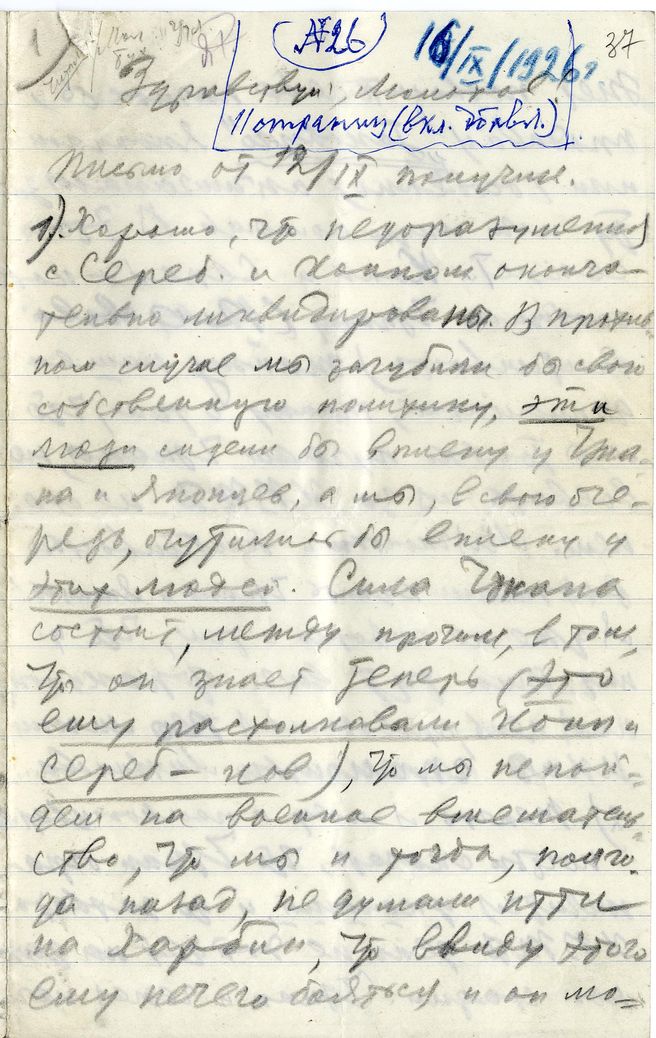 1)
№26
16/IX/1926г
37
Здравствуй, Молотов!
11 страниц (вкл. добавл.)
Письмо от 12/IX получил.
1). Хорошо, что недоразумения
с Сереб. и Коппом оконча-
тельно ликвидированы. В против-
ном случае мы загубили бы свою
собственную политику, эти
люди сидели бы в плену у Чжа-
на и японцев, а мы, в свою оче-
редь, очутились бы в плену у
этих людей. Сила Чжана
состоит, между прочим, в том,
что он знает теперь (это
ему растолковали Копп и
Сереб-ков), что мы не пой-
дем на военное вмешатель-
ство, что мы и тогда, полго-
да назад, не думали итти
на Харбин, что ввиду этого
ему нечего бояться и он мо-